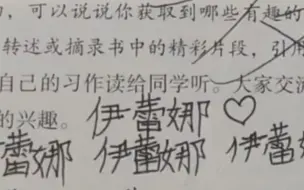 ，可以说说你获取到哪些有趣的
转述或摘录书中的精彩片段，引用
自己的习作读给同学听。大家交流
的兴趣。 伊蕾娜♡
蕾娜 伊蕾娜 伊蕾